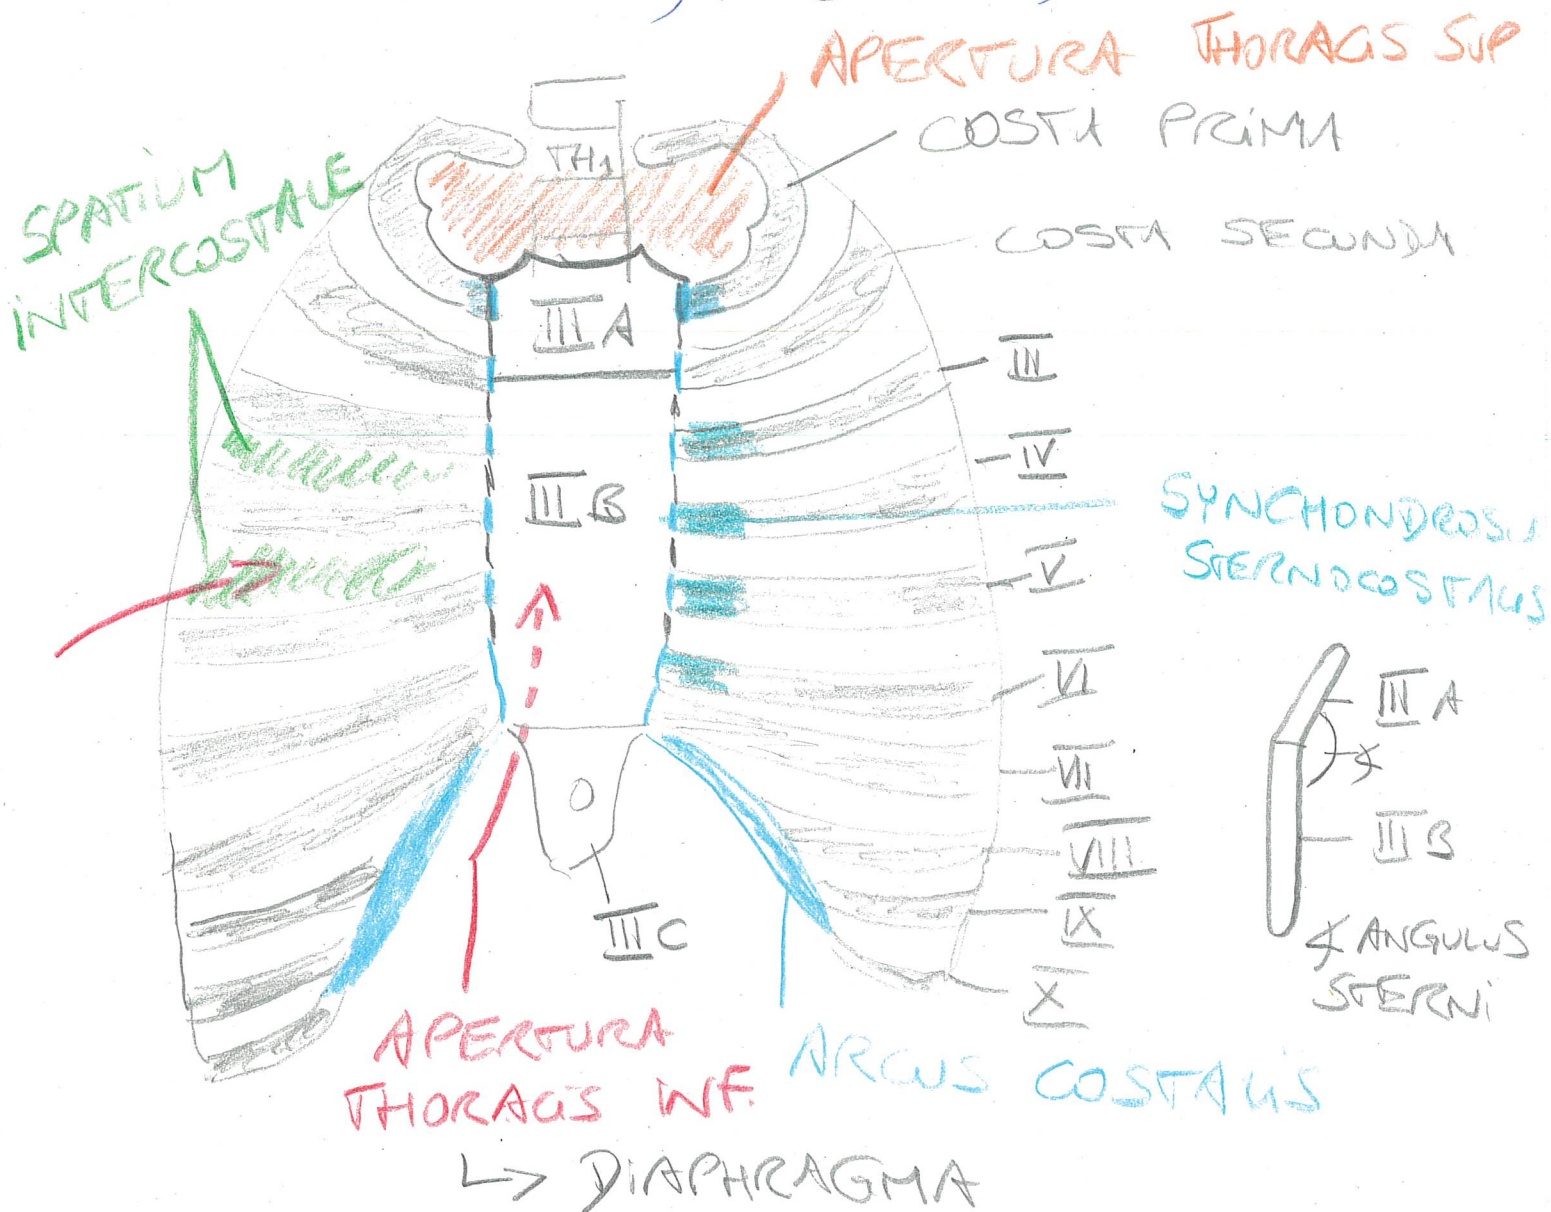 APERTURA THORACIS SUP
COSTA PRIMA
TH1
SPATIUM
INTERCOSTALE
COSTA SECUNDA
III A
III
IV
III B
SYNCHONDROSIS
STERNOCOSTALIS
V
VI
III A
VII
III B
VIII
IX
III C
ANGULUS
STERNI
X
APERTURA
THORACIS INF.
ARCUS COSTALIS
↳ DIAPHRAGMA